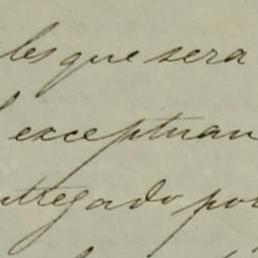 les que sera
exceptuan
ntregado por